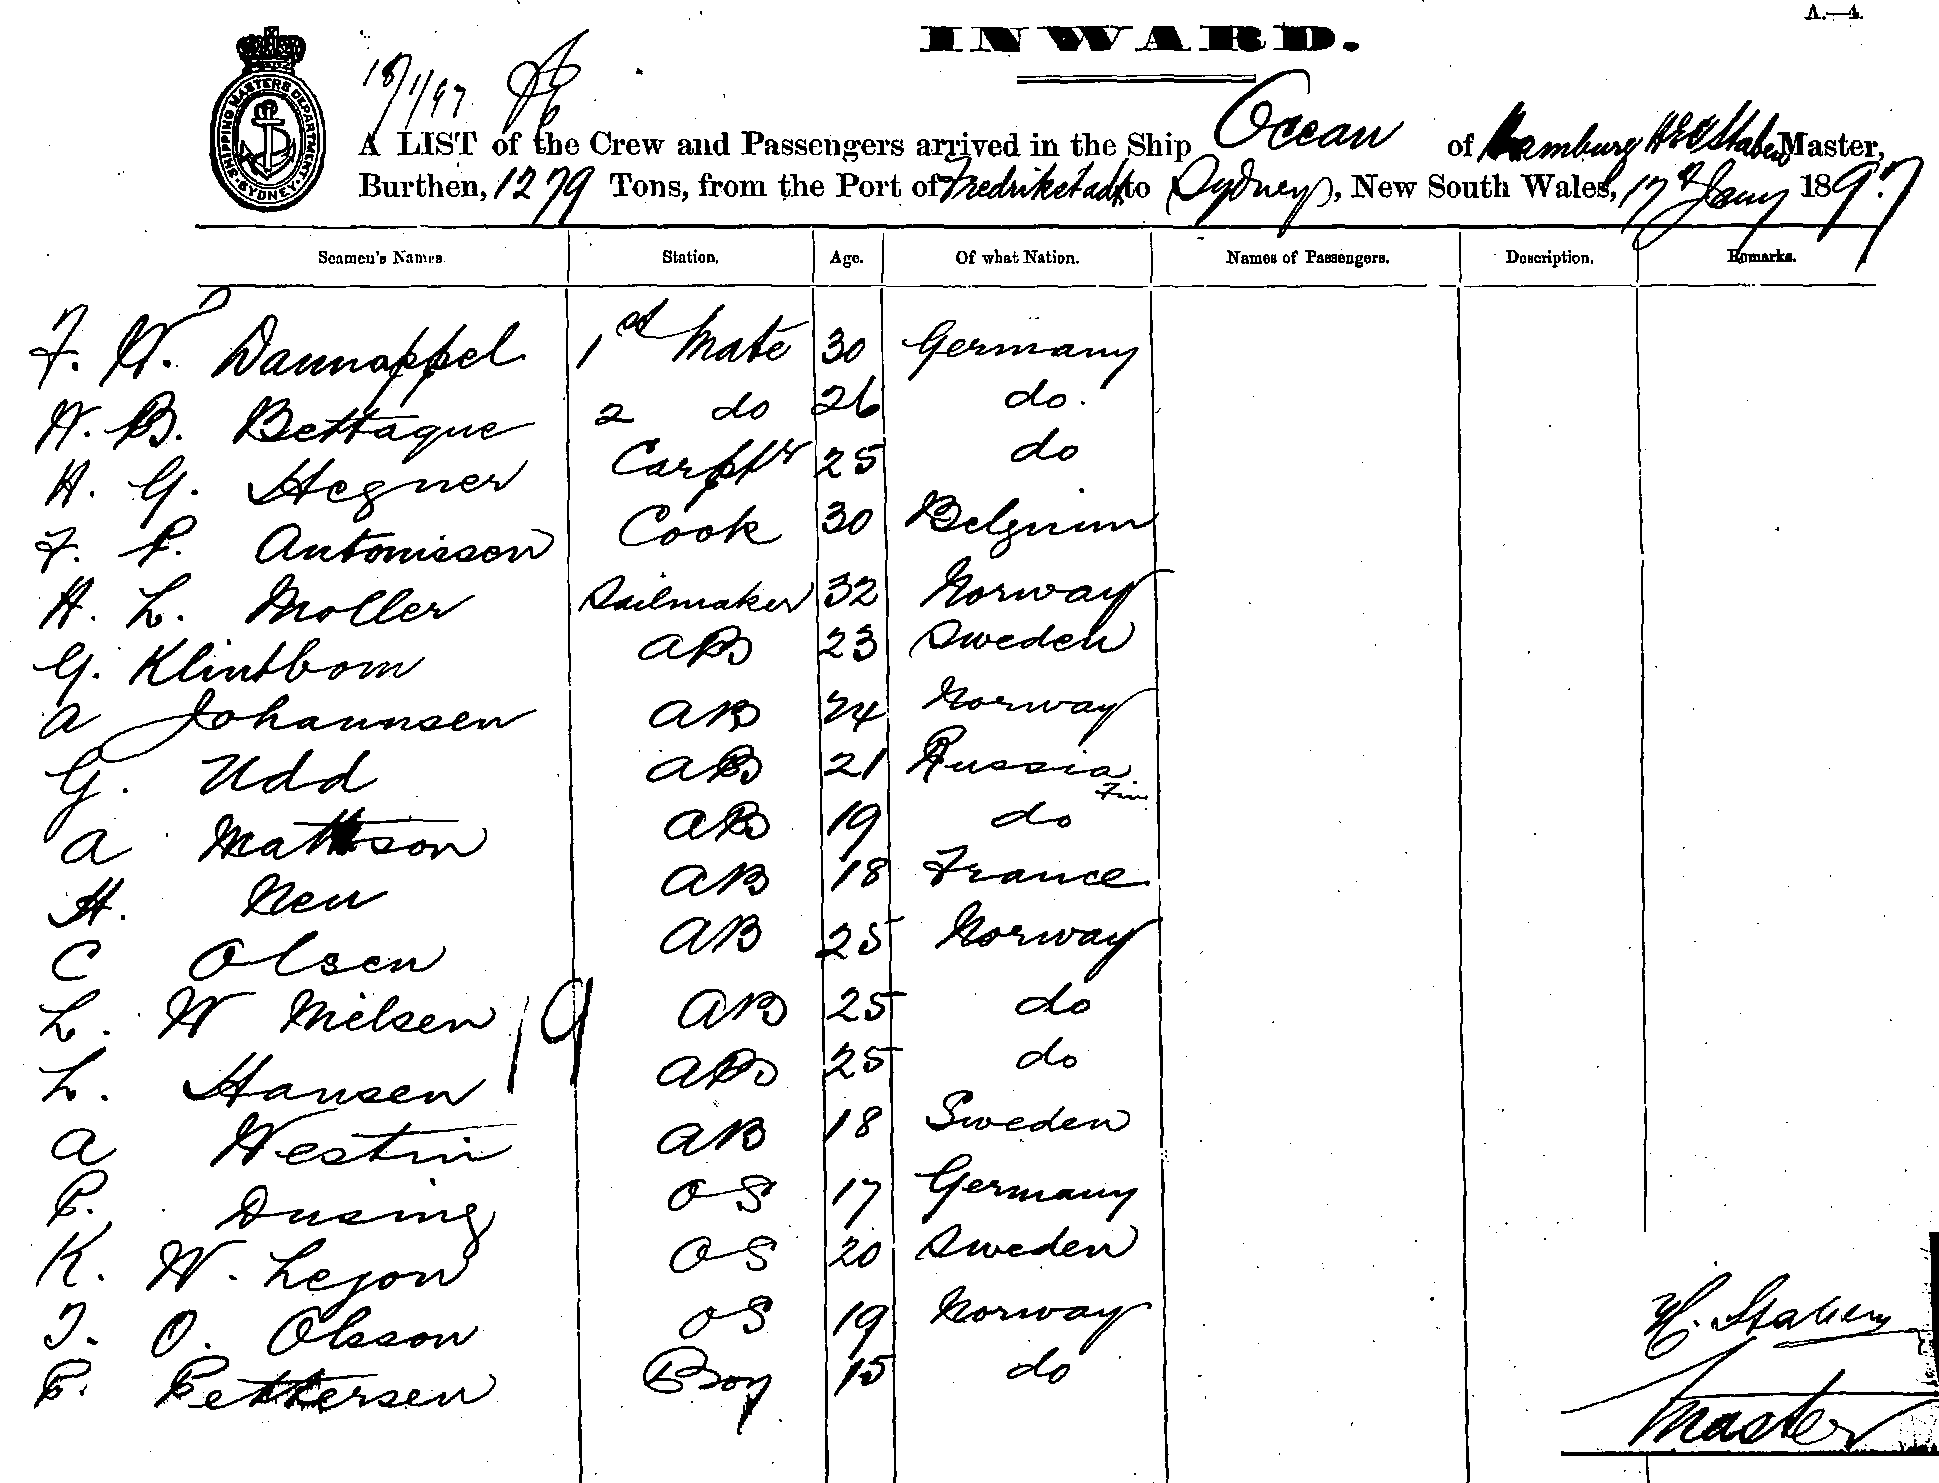 A.—4.
INWARD.
SHIPPING MASTERS DEPARTMENT SYDNEY
18/1/97
A LIST of the Crew and Passengers arrived in the Ship Ocean of Hamburg Staben Master,
Burthen, 1279 Tons, from the Port of Fredrikstadt to Sydney, New South Wales, 17th Jany 1897
Seamen's Names. Station. Age. Of what Nation. Names of Passengers. Description. Remarks.
F. W. Dannappel 1st Mate 30 Germany
W. B. Bettaque 2 do 26 do.
H. G. Hegner Carptr 25 do
F. P. Antonissen Cook 30 Belgium
H. L. Moller Sailmaker 32 Norway
G. Klintbom AB 23 Sweden
A Johannsen AB 24 Norway
G. Udd AB 21 Russia Fin
A Mattson AB 19 do
H. Neu AB 18 France
C Olsen AB 25 Norway
L. W Nielsen AB 25 do
19
L. Hansen AB 25 do
A Westin AB 18 Sweden
P. Dusing OS 17 Germany
K. W. Lejon OS 20 Sweden
T. O. Olsson OS 19 Norway
P. Pettersen Boy 15 do
H. Staben
Master